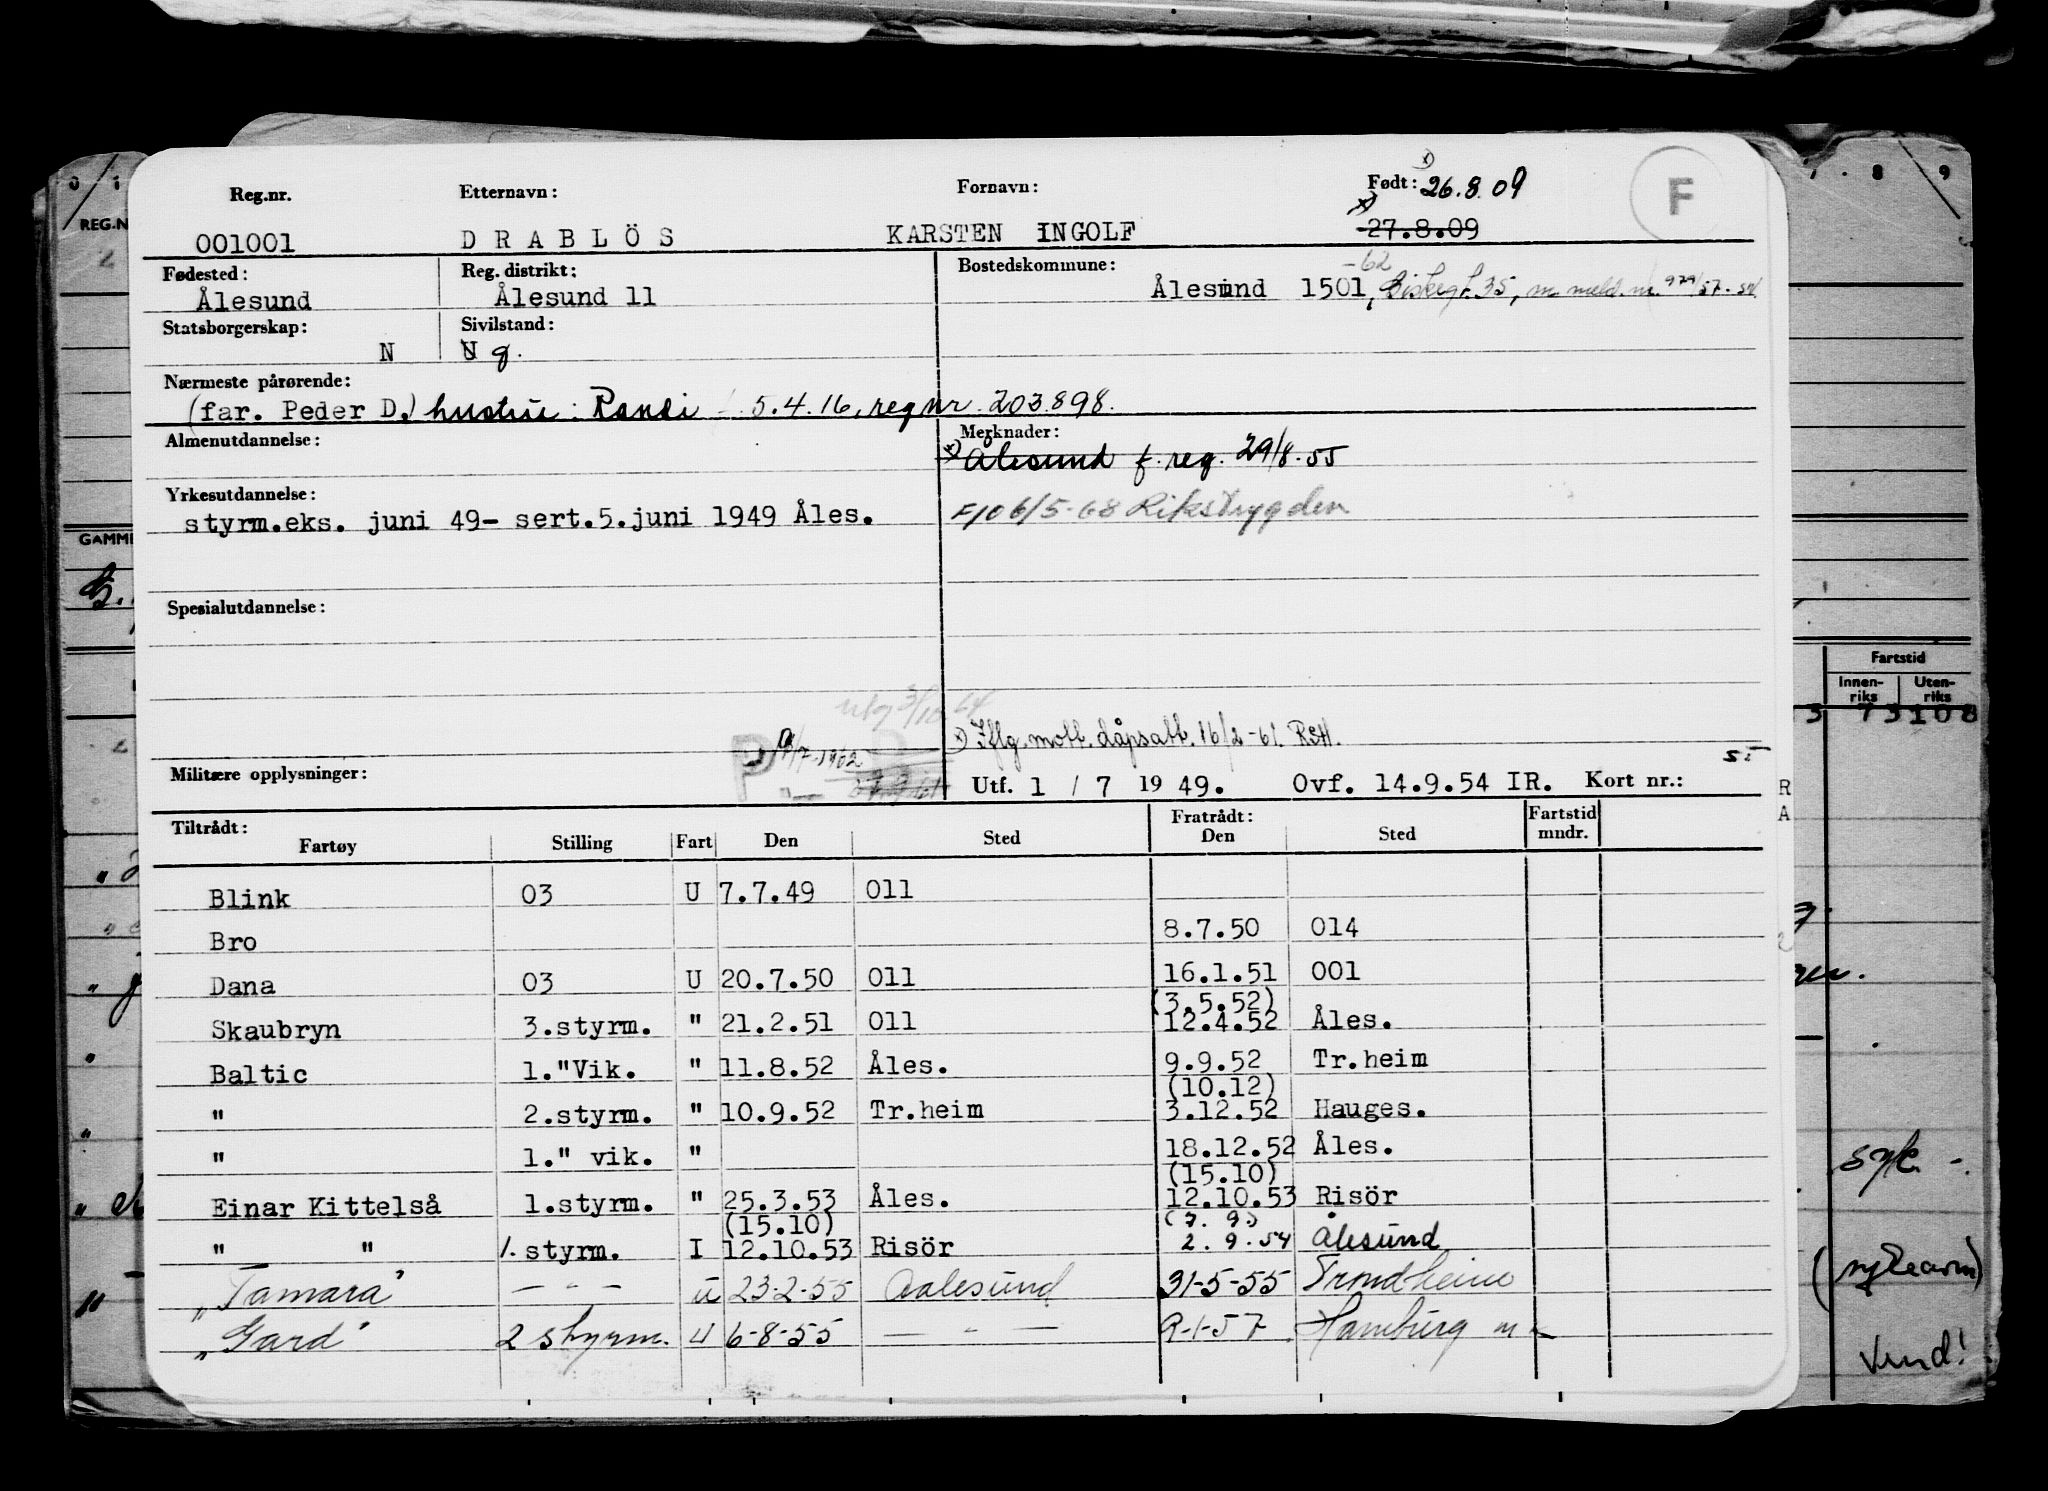 Reg.nr. Etternavn: Fornavn: Født: x) 26.8.09 F
001001 DRABLÖS KARSTEN INGOLF x) 27.8.09
Fødested: Reg. distrikt: Bostedskommune: -62
Ålesund Ålesund 11 Ålesund 1501, 35, m. meld. nr. 929/57
Statsborgerskap: Sivilstand:
N U g.
Nærmeste pårørende:
(far. Peder D.) hustru: Randi 5.4.16, reg nr. 203.898.
Almenutdannelse: Merknader:
x) Ålesund f. reg. 29/8.55
Yrkesutdannelse:
styrm.eks. juni 49- sert.5.juni 1949 Åles. F10 6/5-68 Rikstrygden
Spesialutdannelse:
utg 3/10 64
P 1/7-1962 x) Iflg. mott. dåpsatt. 16/2-61. RSH.
Militære opplysninger: Utf. 1 / 7 1949. Ovf. 14.9.54 IR. Kort nr.:
Tiltrådt: Fratrådt: Fartstid
Fartøy Stilling Fart Den Sted Den Sted mndr.
Blink 03 U 7.7.49 011
Bro 8.7.50 014
Dana 03 U 20.7.50 011 16.1.51 001
(3.5.52)
Skaubryn 3.styrm. " 21.2.51 011 12.4.52 Åles.
Baltic 1."Vik. " 11.8.52 Åles. 9.9.52 Tr.heim
(10.12)
" 2.styrm. " 10.9.52 Tr.heim 3.12.52 Hauges.
" 1." vik. " 18.12.52 Åles.
(15.10)
Einar Kittelså 1.styrm. " 25.3.53 Åles. 12.10.53 Risör
(15.10) (7. 9.)
" " 1. styrm. I 12.10.53 Risör 2.9.54 Ålesund
„Tamara" — " — u 23-2-55 Aalesund 31-5-55 Trondheim
„Gard" 2 styrm. u 6-8-55 — " — 9-1-57 Hamburg
0 1 8 9
REG.N
GAMME
Fartstid
Innen-riks Uten-riks
3 73 108
R
A
syk -.
(sykearm)
Vend!